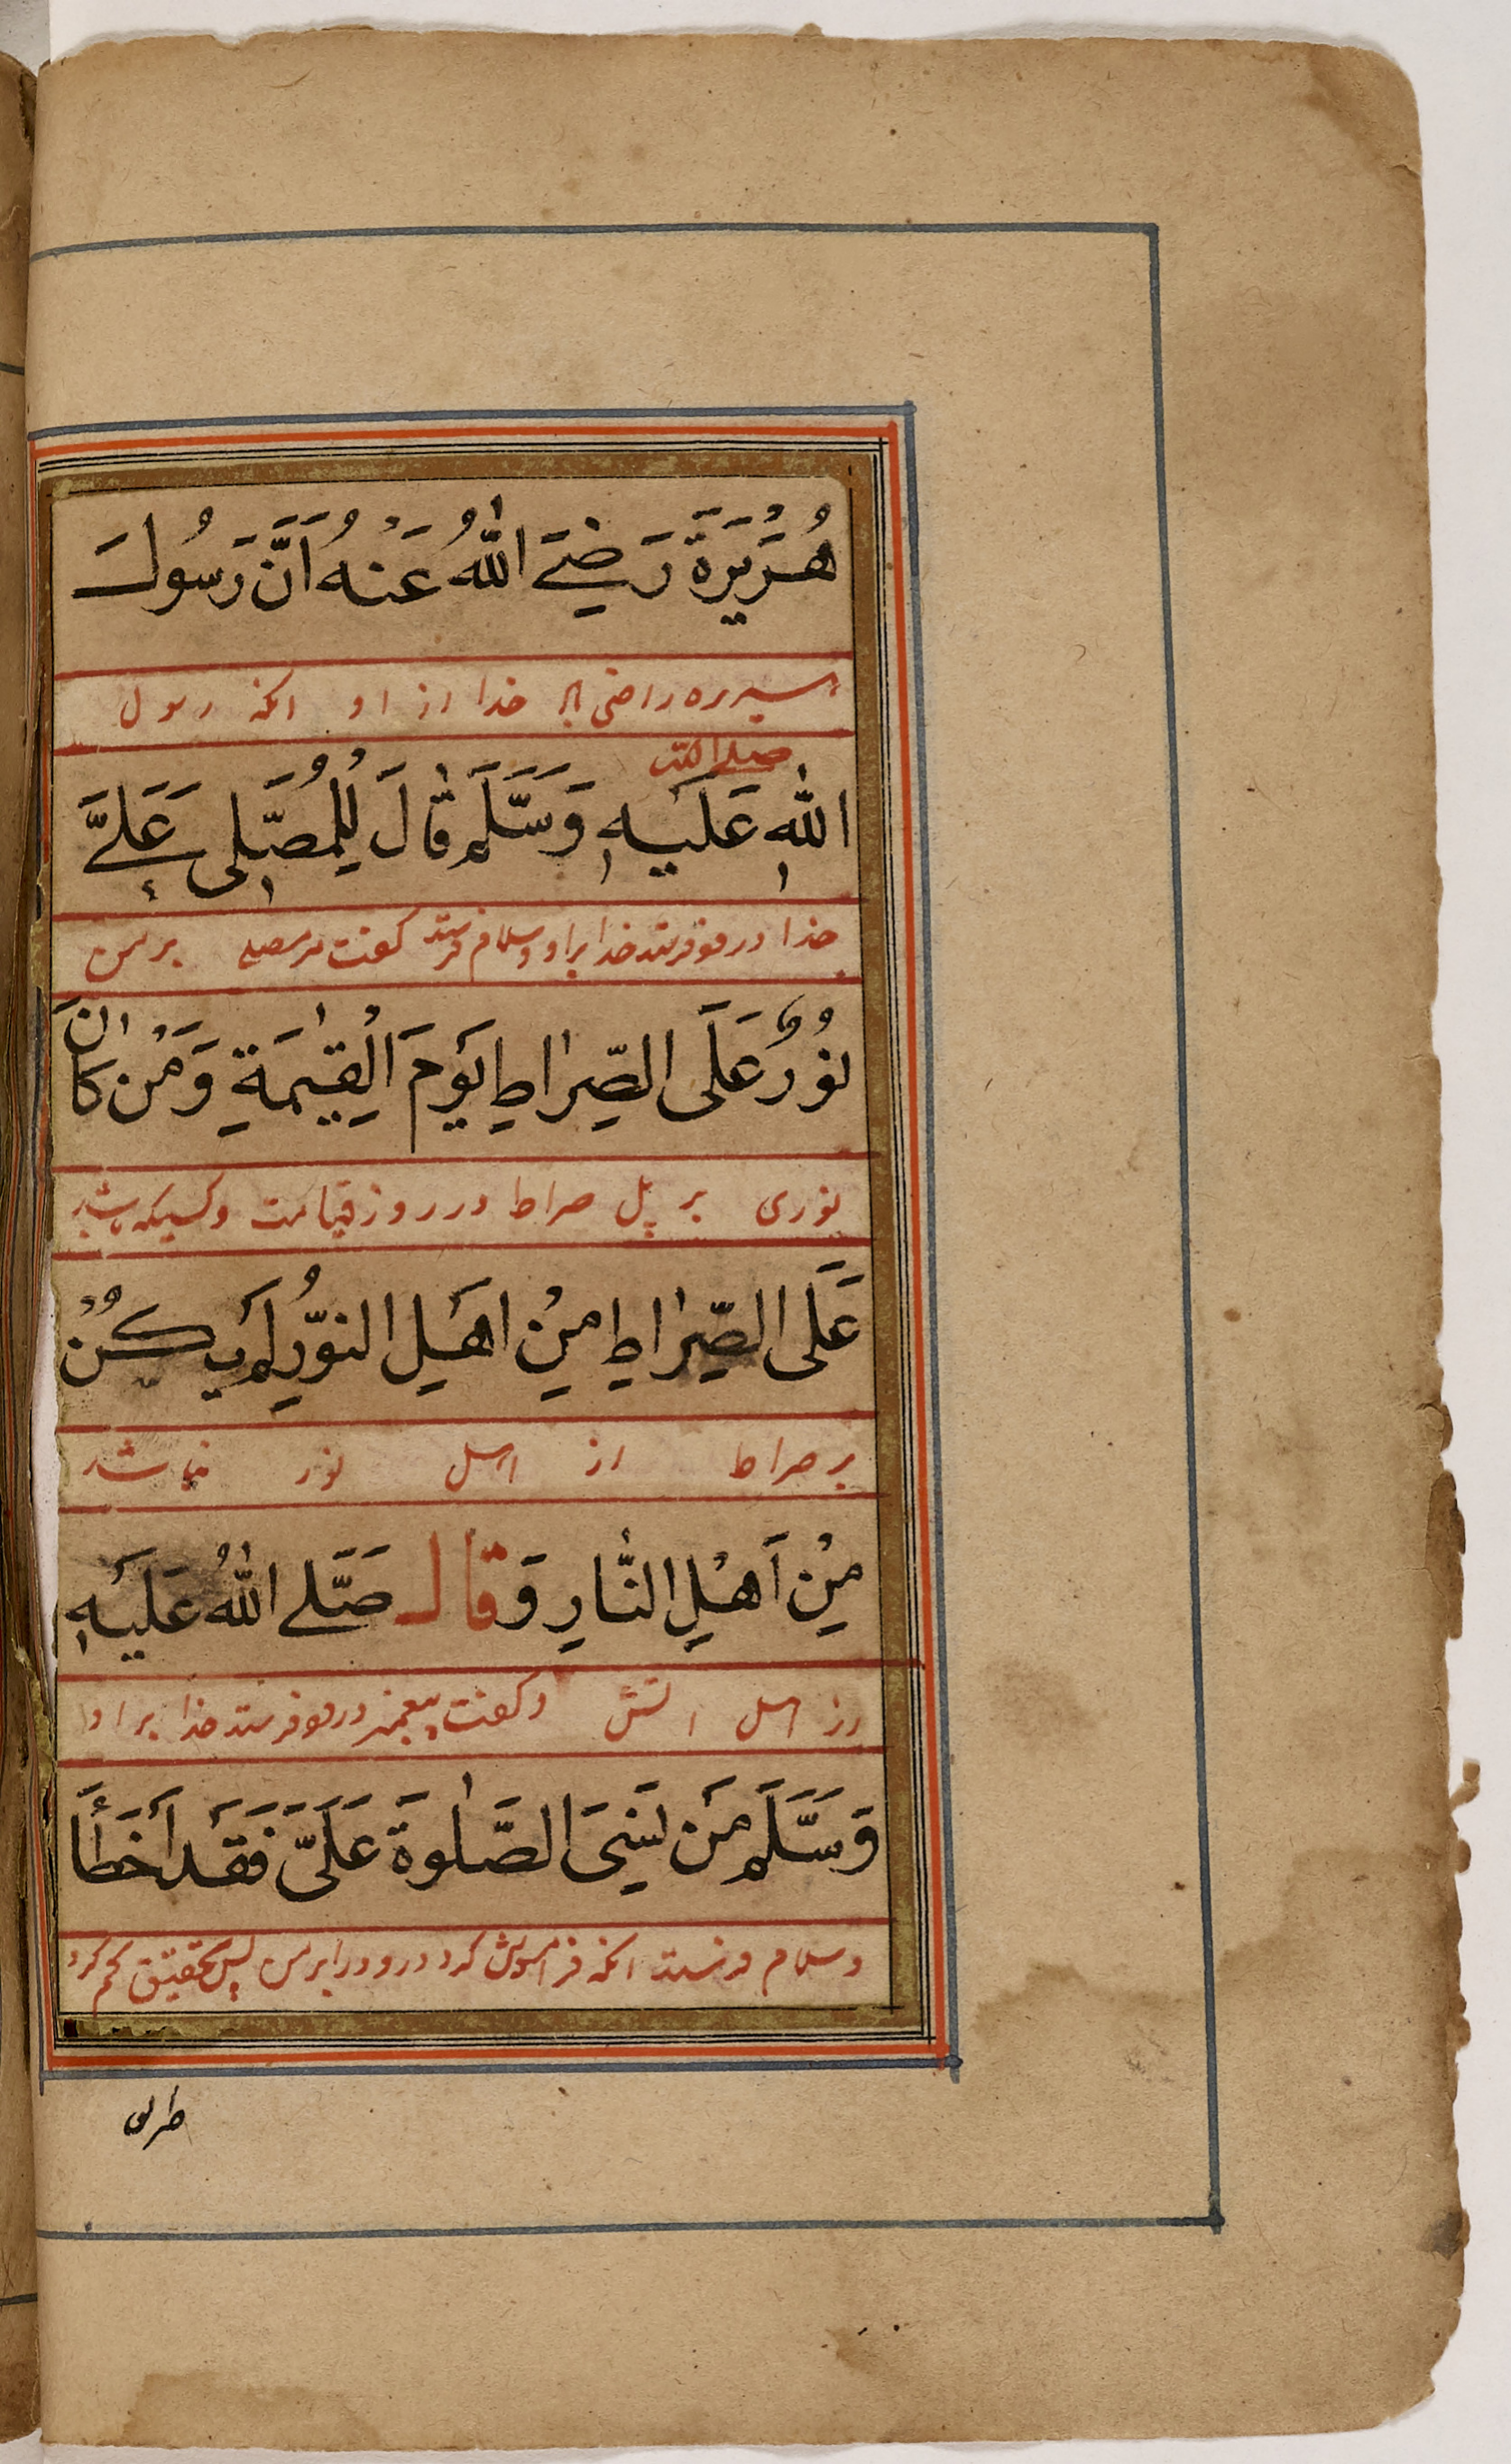 هُرَيْرَةَ رَضِيَ اللّٰهُ عَنْهُ اَنَّ رَسُولَ
هریره راضی خدا از او انکه رسول
صلی الله
اللّٰهِ عَلَيْهِ وَسَلَّمَ قَالَ لِلْمُصَلِّى عَلَىَّ
خدا درود فرستد خدا بر او و سلام فرستد گفت مر مصلی بر من
نُوْرٌ عَلَى الصِّرَاطِ يَوْمَ الْقِيٰمَةِ وَمَنْ كَانَ
نوری بر پل صراط در روز قیامت و کسیکه باشد
عَلَى الصِّرَاطِ مِنْ اَهْلِ النُّوْرِ لَمْ يَكُنْ
بر صراط از اهل نور نباشد
مِنْ اَهْلِ النَّارِ وَقَالَ صَلَّى اللّٰهُ عَلَيْهِ
از اهل اتش و گفت پیغمبر درود فرستد خدا بر او
وَسَلَّمَ مَنْ نَسِىَ الصَّلٰوةَ عَلَىَّ فَقَدْ اَخْطَأَ
و سلام فرستد انکه فراموش کرد درود را بر من پس بتحقیق گم کرد
طریق